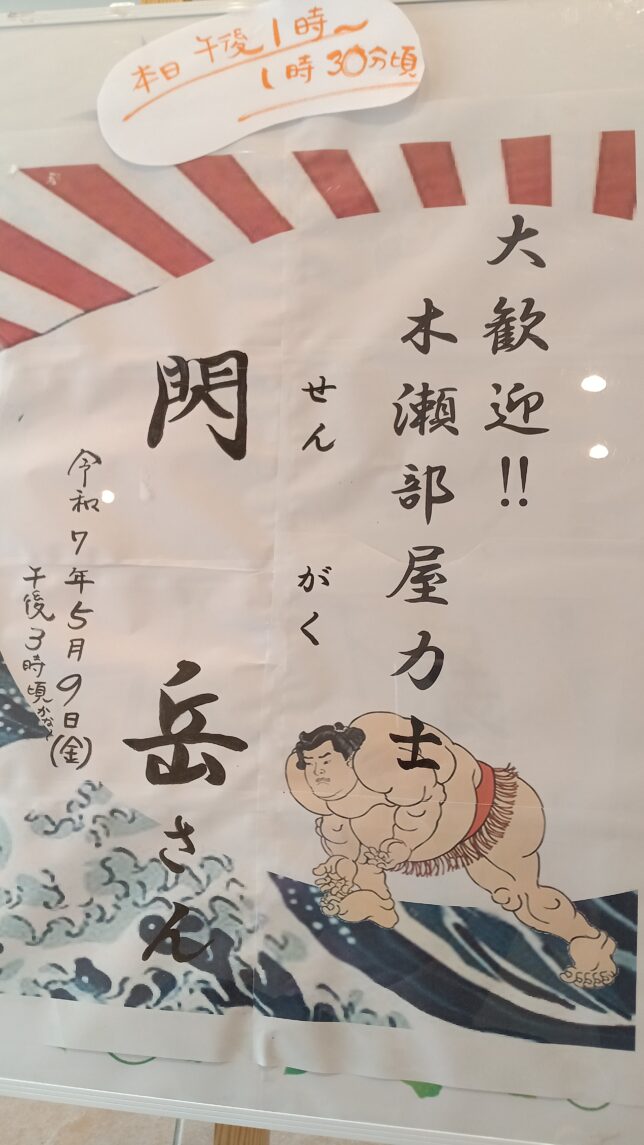 本日 午後1時〜
1時30分頃
大歓迎!!
木瀬部屋力士
せん がく
閃岳さん
令和7年5月9日(金)
午後3時頃かな?